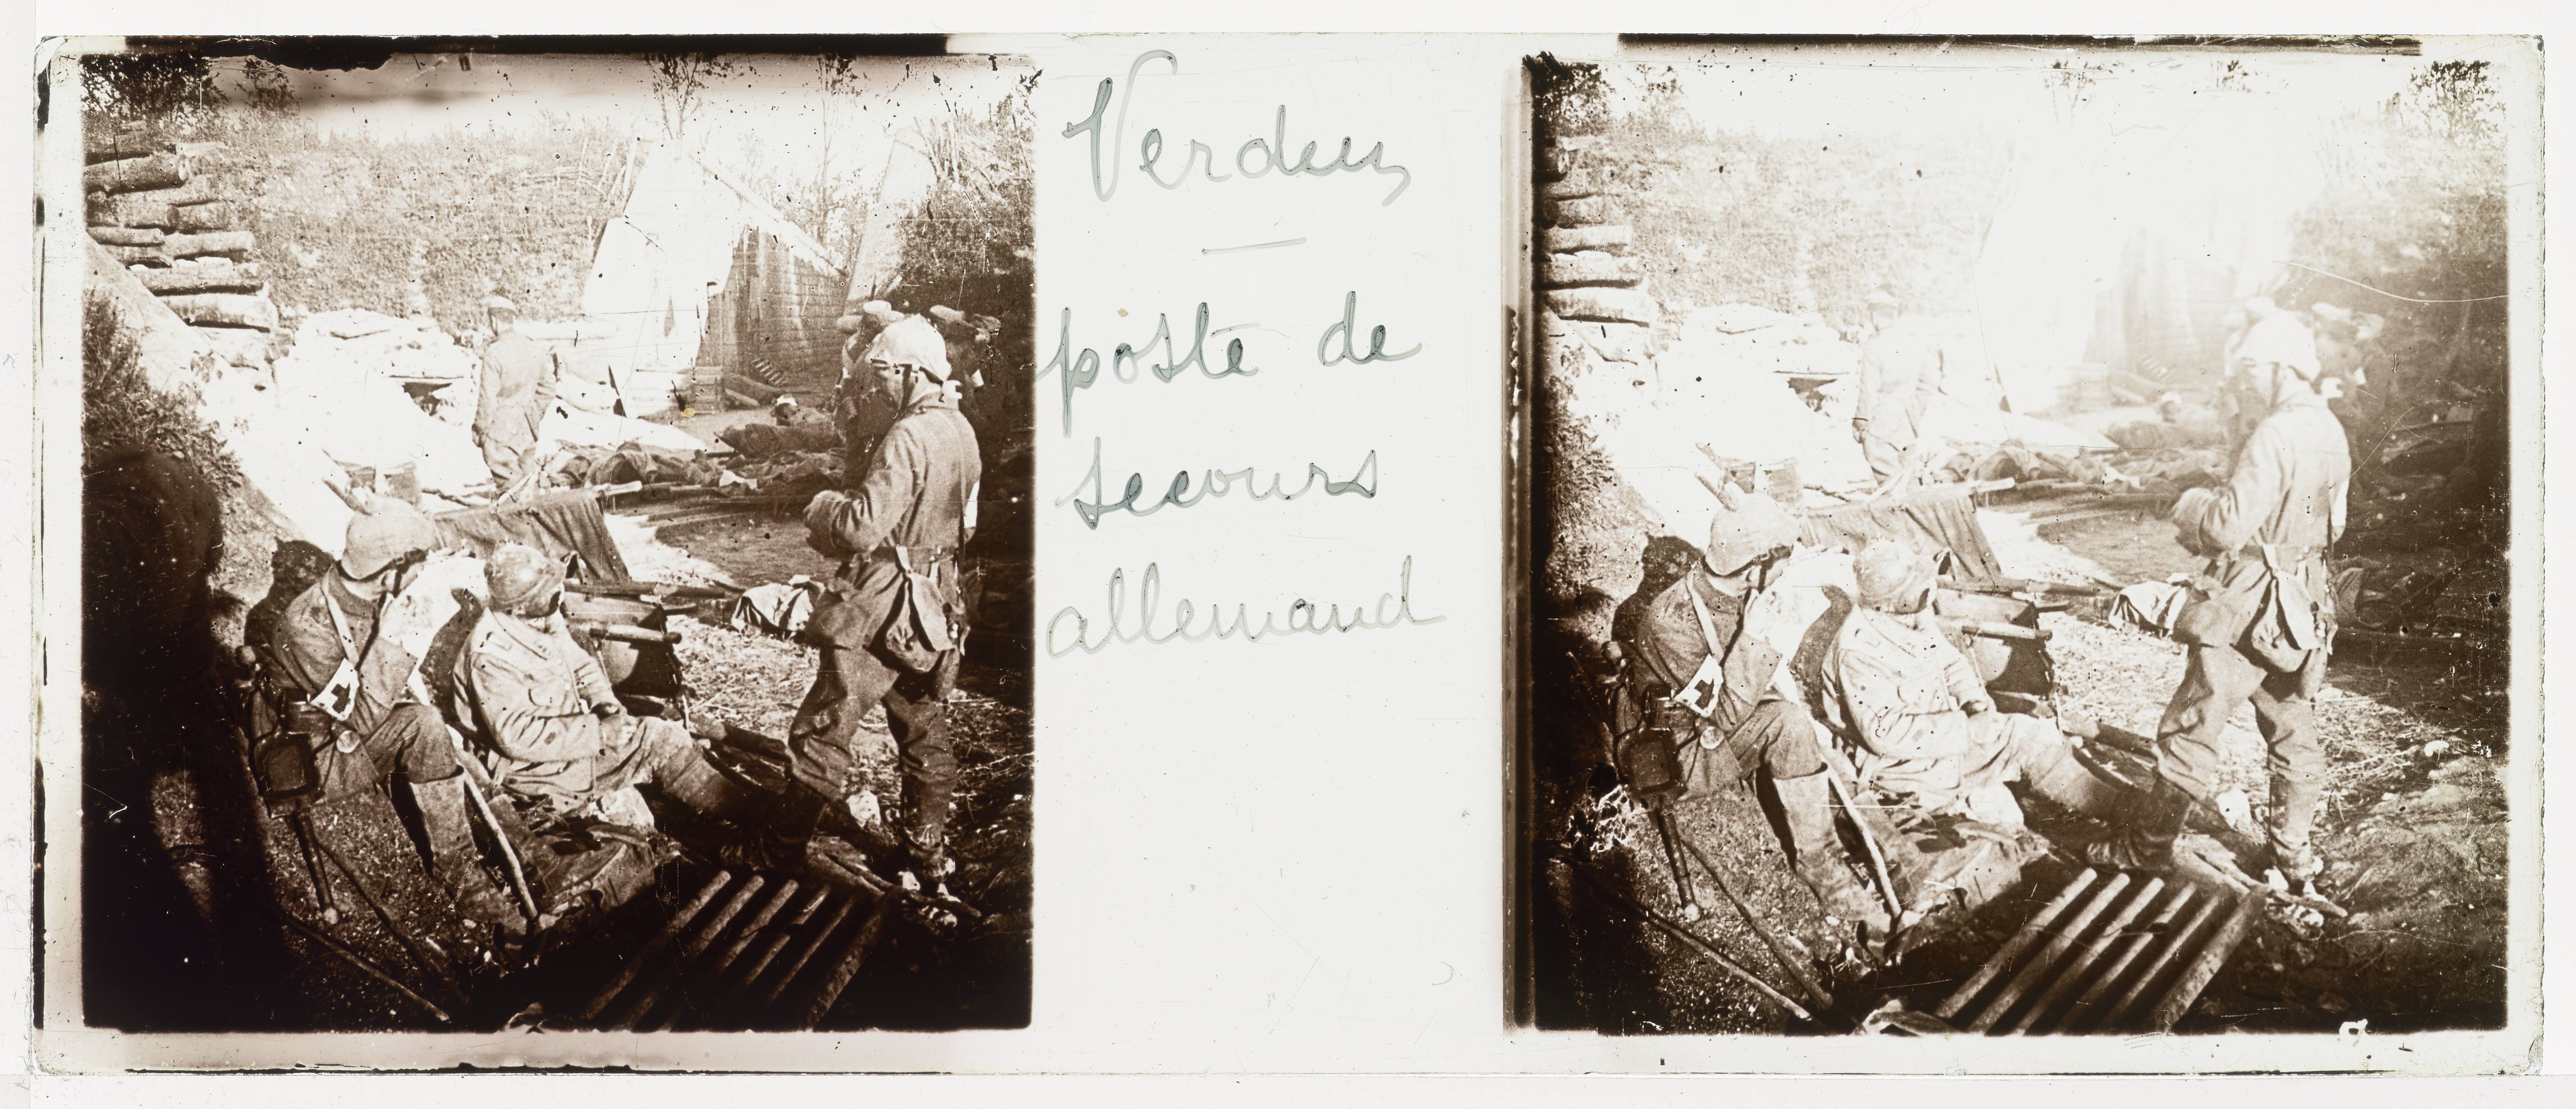 Verdun
—
poste de
secours
allemand